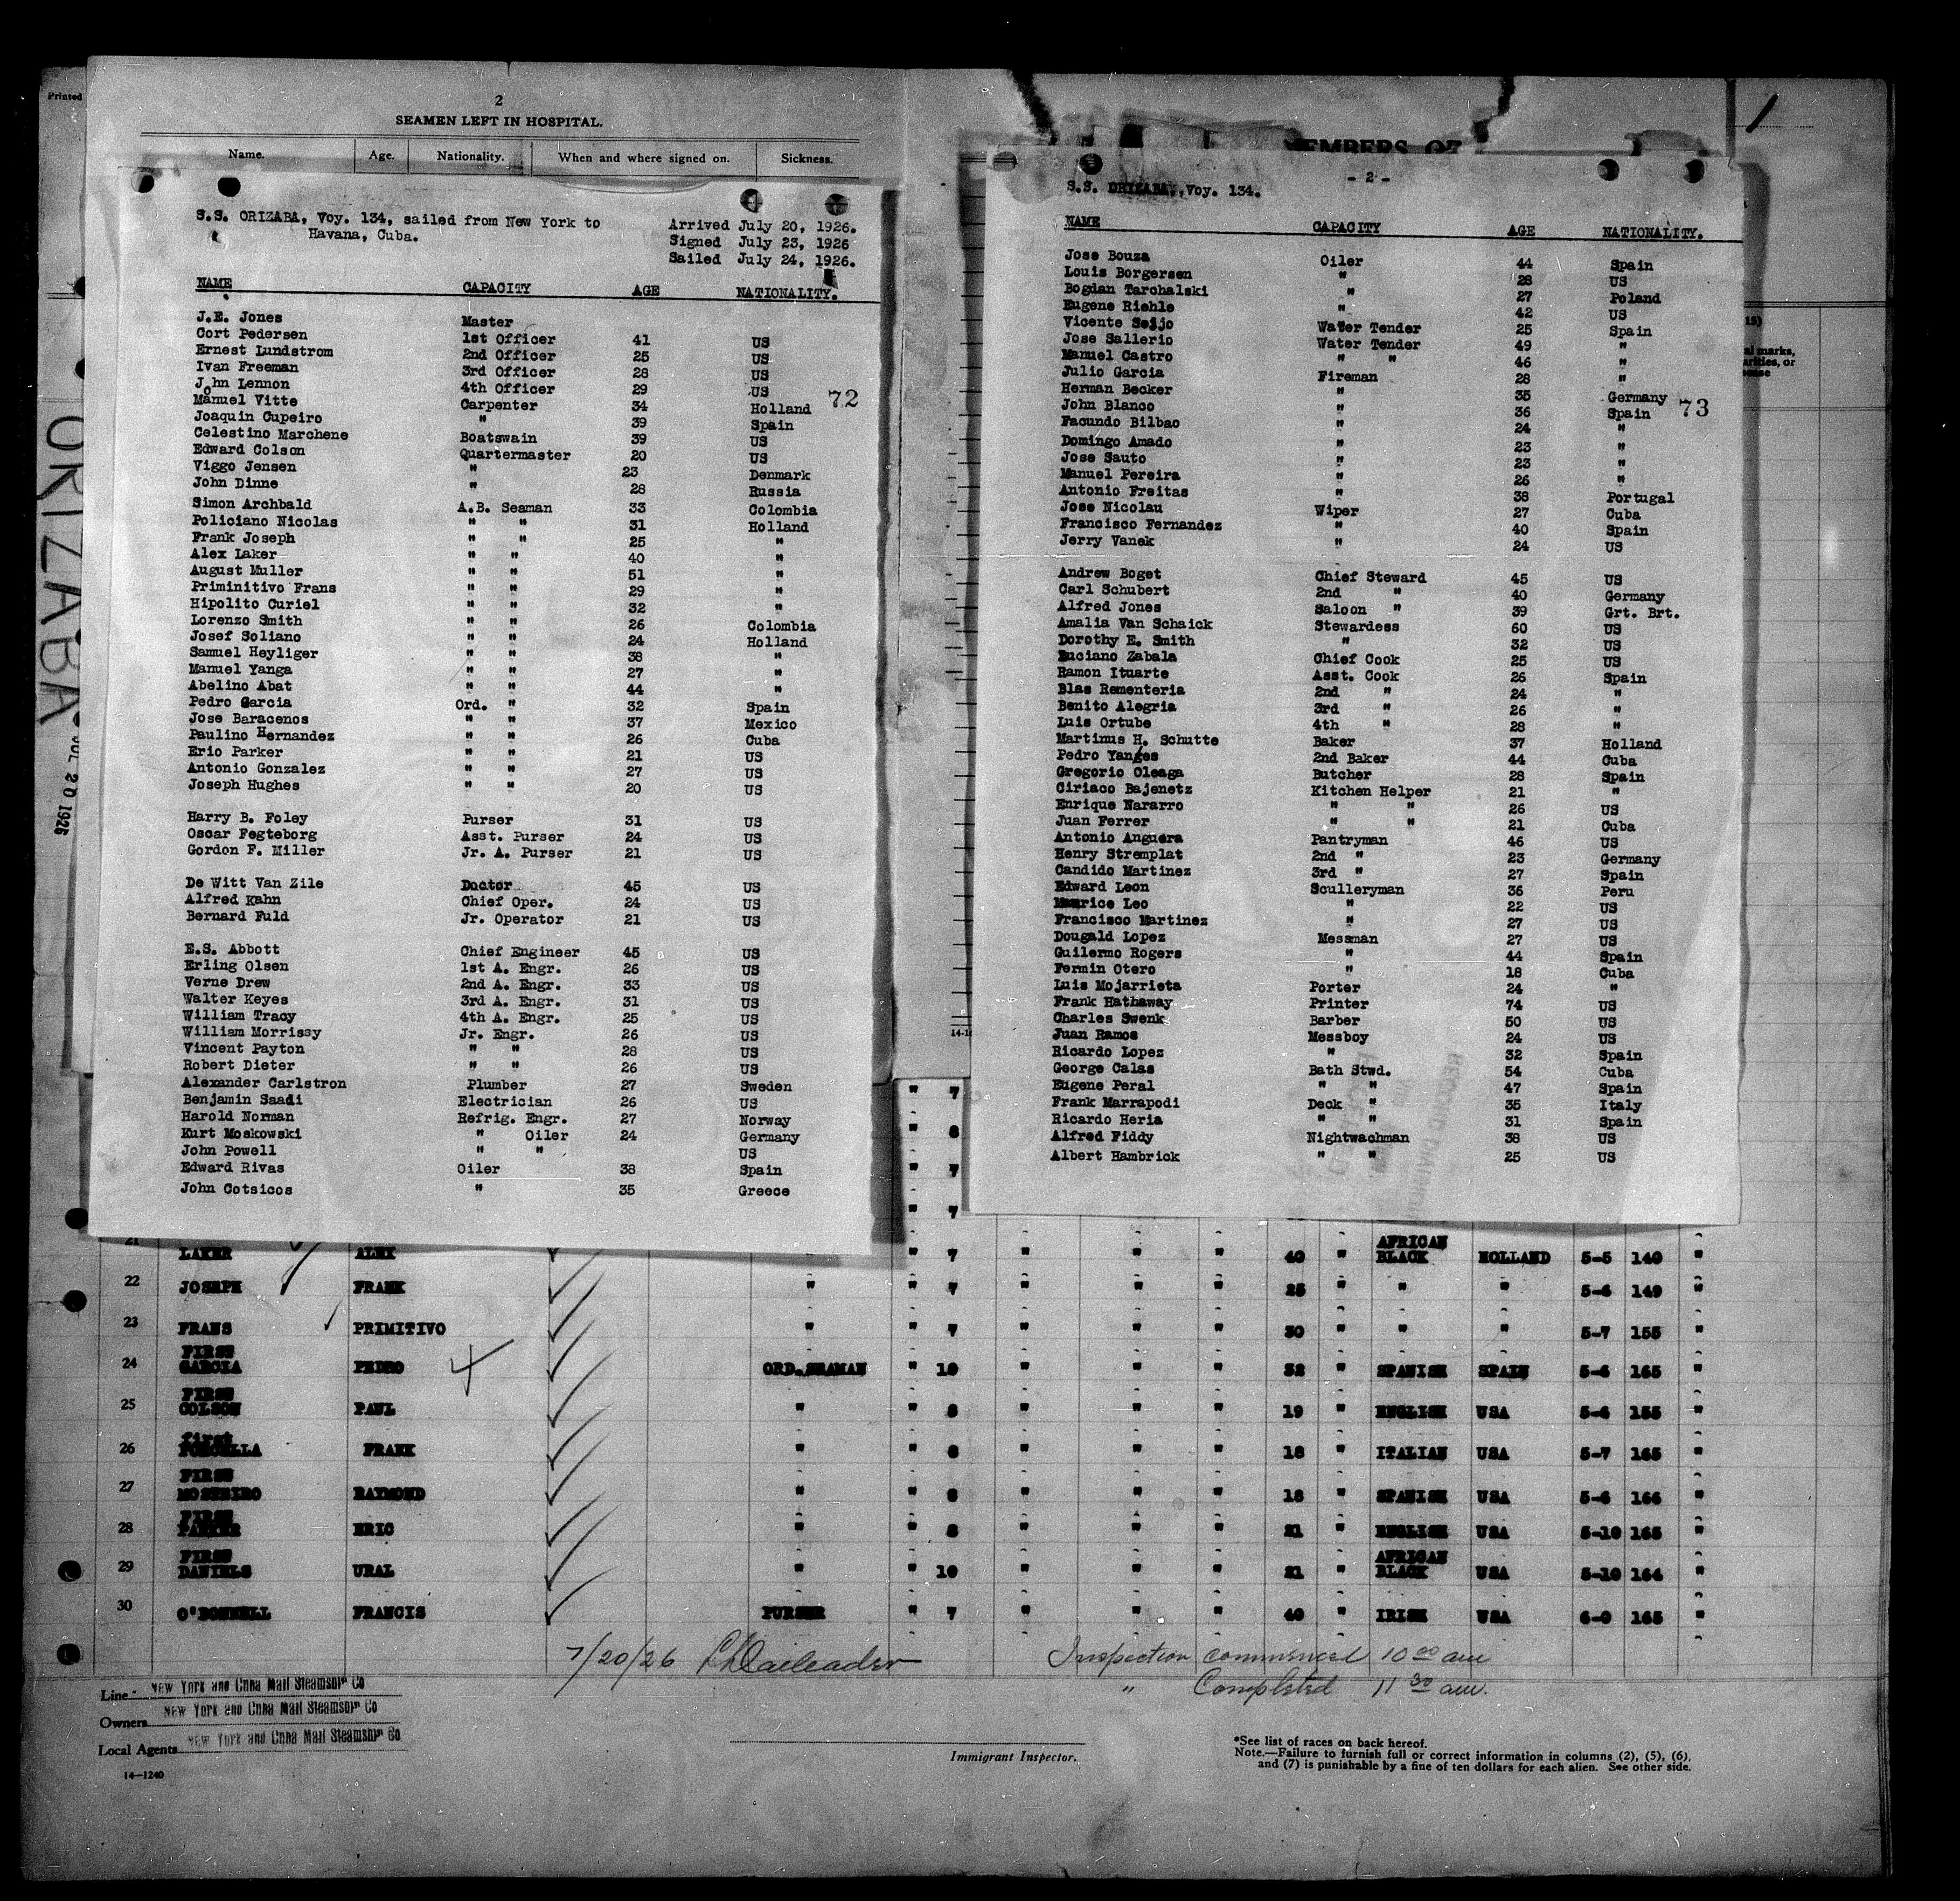 Printed
2
SEAMEN LEFT IN HOSPITAL.
Name. Age. Nationality. When and where signed on. Sickness.
S.S. ORIZABA, Voy. 134, sailed from New York to
Havana, Cuba.
Arrived July 20, 1926.
Signed July 23, 1926
Sailed July 24, 1926.
NAME CAPACITY AGE NATIONALITY.
J.E. Jones Master
Cort Pedersen 1st Officer 41 US
Ernest Lundstrom 2nd Officer 25 US
Ivan Freeman 3rd Officer 28 US
John Lennon 4th Officer 29 US
72
Manuel Vitte Carpenter 34 Holland
Joaquin Cupeiro " 39 Spain
Celestino Marchene Boatswain 39 US
Edward Colson Quartermaster 20 US
Viggo Jensen " 23 Denmark
John Dinne " 28 Russia
Simon Archbald A.B. Seaman 33 Colombia
Policiano Nicolas " " 31 Holland
Frank Joseph " " 25 "
Alex Laker " " 40 "
August Muller " " 51 "
Priminitivo Frans " " 29 "
Hipolito Curiel " " 32 "
Lorenzo Smith " " 26 Colombia
Josef Soliano " " 24 Holland
Samuel Heyliger " " 38 "
Manuel Yanga " " 27 "
Abelino Abat " " 44 "
Pedro Garcia Ord. " 32 Spain
Jose Baracenos " " 37 Mexico
Paulino Hernandez " " 26 Cuba
Eric Parker " " 21 US
Antonio Gonzalez " " 27 US
Joseph Hughes " " 20 US
Harry B. Foley Purser 31 US
Oscar Fegteborg Asst. Purser 24 US
Gordon F. Miller Jr. A. Purser 21 US
De Witt Van Zile Doctor 45 US
Alfred Kahn Chief Oper. 24 US
Bernard Fuld Jr. Operator 21 US
E.S. Abbott Chief Engineer 45 US
Erling Olsen 1st A. Engr. 26 US
Verne Drew 2nd A. Engr. 33 US
Walter Keyes 3rd A. Engr. 31 US
William Tracy 4th A. Engr. 25 US
William Morrissy Jr. Engr. 26 US
Vincent Payton " " 28 US
Robert Dieter " " 26 US
Alexander Carlstron Plumber 27 Sweden
Benjamin Saadi Electrician 26 US
Harold Norman Refrig. Engr. 27 Norway
Kurt Moskowski " Oiler 24 Germany
John Powell " " US
Edward Rivas Oiler 38 Spain
John Cotsicos " 35 Greece
ORIZABA
JUL 20 1926
1
MEMBERS OF
- 2 -
S.S. ORIZABA, Voy. 134.
NAME CAPACITY AGE NATIONALITY.
Jose Bouza Oiler 44 Spain
Louis Borgersen " 28 US
Bogdan Tarchalski " 27 Poland
Eugene Riehle " 42 US
Vicente Seijo Water Tender 25 Spain
Jose Sallerio Water Tender 49 "
Manuel Castro " " 46 "
Julio Garcia Fireman 28 "
Herman Becker " 35 Germany
73
John Blanco " 36 Spain
Facundo Bilbao " 24 "
Domingo Amado " 23 "
Jose Sauto " 23 "
Manuel Pereira " 26 "
Antonio Freitas " 38 Portugal
Jose Nicolau Wiper 27 Cuba
Francisco Fernandez " 40 Spain
Jerry Vanek " 24 US
Andrew Boget Chief Steward 45 US
Carl Schubert 2nd " 40 Germany
Alfred Jones Saloon " 39 Grt. Brt.
Amalia Van Schaick Stewardess 60 US
Dorothy E. Smith " 32 US
Luciano Zabala Chief Cook 25 US
Ramon Ituarte Asst. Cook 26 Spain
Blas Rementeria 2nd " 24 "
Benito Alegria 3rd " 26 "
Luis Ortube 4th " 28 "
Martinus H. Schutte Baker 37 Holland
Pedro Yanges 2nd Baker 44 Cuba
Gregorio Oleaga Butcher 28 Spain
Ciriaco Bajenetz Kitchen Helper 21 "
Enrique Nararro " " 26 US
Juan Ferrer " " 21 Cuba
Antonio Anguera Pantryman 46 US
Henry Stremplat 2nd " 23 Germany
Candido Martinez 3rd " 27 Spain
Edward Leon Sculleryman 36 Peru
Maurice Leo " 22 US
Francisco Martinez " 27 US
Dougald Lopez Messman 27 US
Guilermo Rogers " 44 Spain
Fermin Otero " 18 Cuba
Luis Mojarrieta Porter 24 "
Frank Hathaway Printer 74 US
Charles Swenk Barber 50 US
Juan Ramos Messboy 24 US
Ricardo Lopez " 32 Spain
George Calas Bath Stwd. 54 Cuba
Eugene Peral " " 47 Spain
Frank Marrapodi Deck " 35 Italy
Ricardo Heria " " 31 Spain
Alfred Fiddy Nightwachman 38 US
Albert Hambrick " " 25 US
" 7
" 8
" 7
" 7
21 LAKER ALEX " 7 " " " 40 " AFRICAN BLACK HOLLAND 5-5 140 "
22 JOSEPH FRANK " " 7 " " " 25 " " " 5-6 149 "
23 FRANS PRIMITIVO " " 7 " " " 30 " " " 5-7 155 "
24 FIRST GARCIA PEDRO ORD.SEAMAN " 10 " " " 32 " SPANISH SPAIN 5-6 165 "
25 FIRST COLSON PAUL " " 8 " " " 19 " ENGLISH USA 5-6 155 "
26 first FRANK " " 8 " " " 18 " ITALIAN USA 5-7 165 "
27 FIRST RAYMOND " " 8 " " " 18 " SPANISH USA 5-6 166 "
28 FIRST PARKER ERIC " " 8 " " " 21 " ENGLISH USA 5-10 165 "
29 FIRST DANIELS URAL " " 10 " " " 21 " AFRICAN BLACK USA 5-10 164 "
30 O'DONNELL FRANCIS PURSER " 7 " " " 40 " IRISH USA 6-0 165 "
7/20/26
Inspection commenced 10 00 am
" Completed 11 30 am.
Line New York and Cuba Mail Steamship Co
Owners New York and Cuba Mail Steamship Co
Local Agents New York and Cuba Mail Steamship Co
14-1240
Immigrant Inspector.
*See list of races on back hereof.
Note.—Failure to furnish full or correct information in columns (2), (5), (6),
and (7) is punishable by a fine of ten dollars for each alien. See other side.